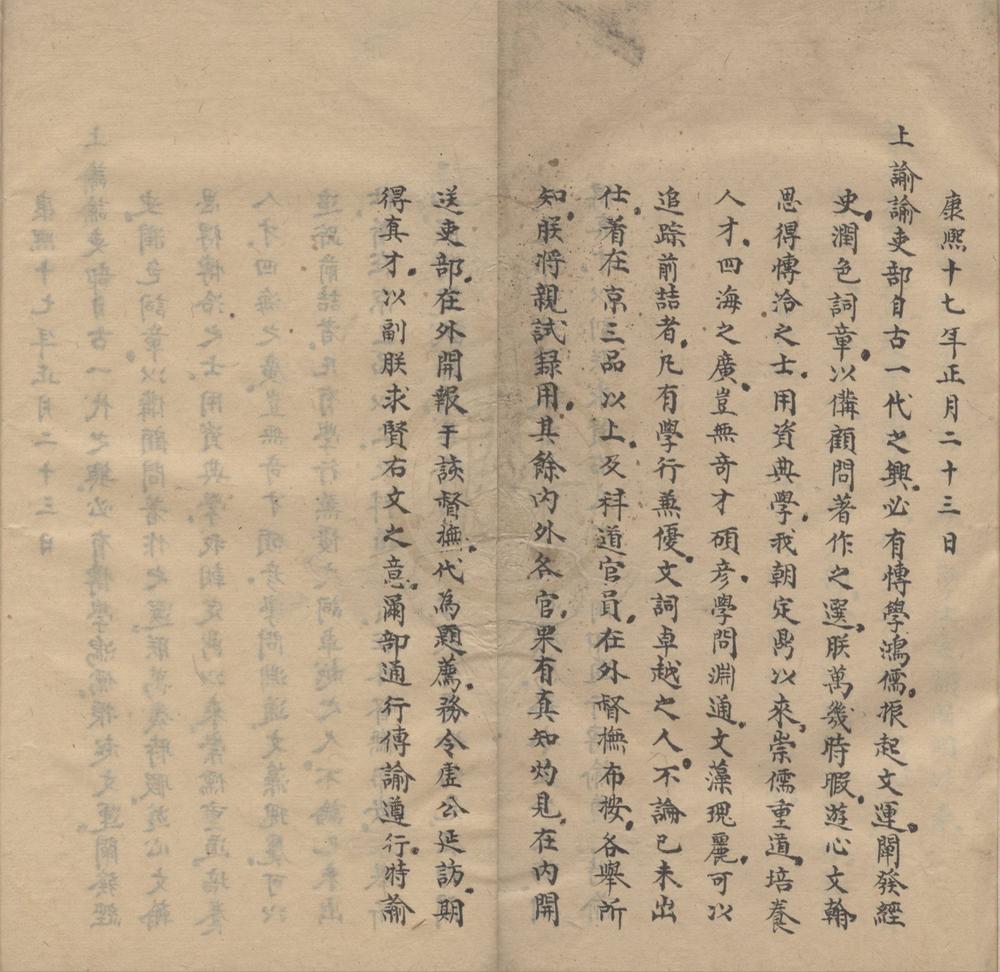 康熙十七年正月二十三日
上諭諭吏部自古一代之興必有愽學鴻儒振起文運闡發經
史潤色詞章以俻顧問著作之選朕萬幾時暇遊心文翰
思得愽洽之士用資典學我朝定鼎以來崇儒重道培養
人才四海之廣豈無竒才碩彥學問淵通文藻瑰麗可以
追踪前喆者凡有學行兼優文詞卓越之人不論已未出
仕着在京三品以上及科道官員在外督撫布按各舉所
知朕將親試録用其餘內外各官果有真知灼見在內開
送吏部在外開報于該督撫代為題薦務令虛公延訪期
得真才以副朕求賢右文之意爾部通行傳諭遵行特諭